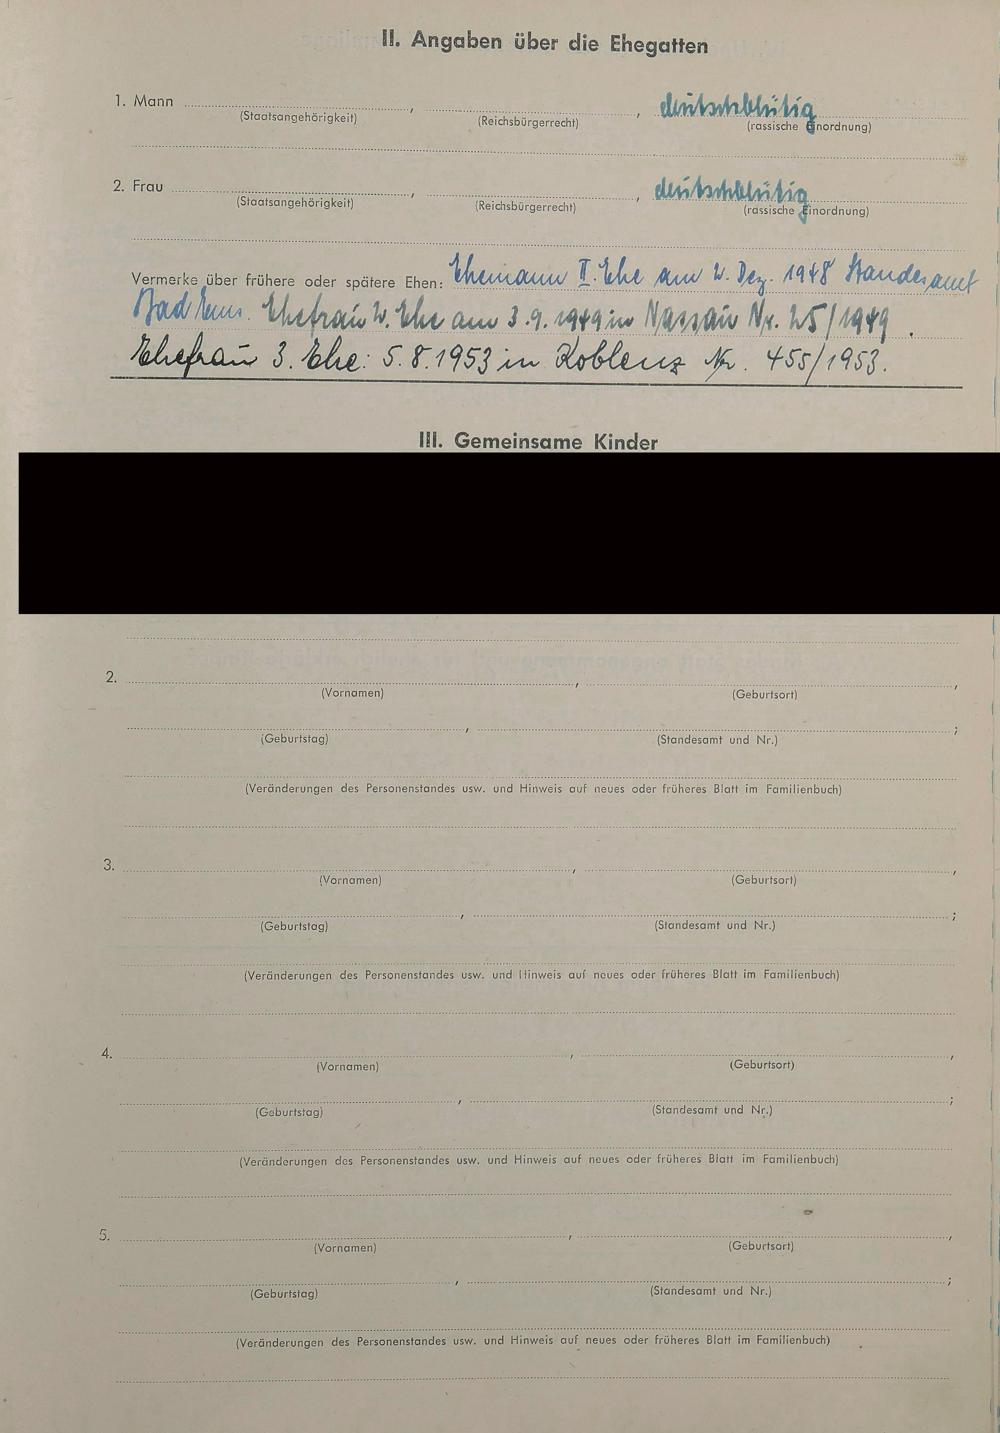 II. Angaben über die Ehegatten
1. Mann , , deutschblütig
(Staatsangehörigkeit) (Reichsbürgerrecht) (rassische Einordnung)
2. Frau , , deutschblütig
(Staatsangehörigkeit) (Reichsbürgerrecht) (rassische Einordnung)
Vermerke über frühere oder spätere Ehen: Ehemann II. Ehe am 2. Dez. 1948 Standesamt
Bad Ems. Ehefrau 2. Ehe am 3.9.1949 in Nassau Nr. 25/1949.
Ehefrau 3. Ehe: 5.8.1953 in Koblenz Nr. 455/1953.
III. Gemeinsame Kinder
2. , ,
(Vornamen) (Geburtsort)
, ;
(Geburtstag) (Standesamt und Nr.)
(Veränderungen des Personenstandes usw. und Hinweis auf neues oder früheres Blatt im Familienbuch)
3. , ,
(Vornamen) (Geburtsort)
, ;
(Geburtstag) (Standesamt und Nr.)
(Veränderungen des Personenstandes usw. und Hinweis auf neues oder früheres Blatt im Familienbuch)
4. , ,
(Vornamen) (Geburtsort)
, ;
(Geburtstag) (Standesamt und Nr.)
(Veränderungen des Personenstandes usw. und Hinweis auf neues oder früheres Blatt im Familienbuch)
5. , ,
(Vornamen) (Geburtsort)
, ;
(Geburtstag) (Standesamt und Nr.)
(Veränderungen des Personenstandes usw. und Hinweis auf neues oder früheres Blatt im Familienbuch)